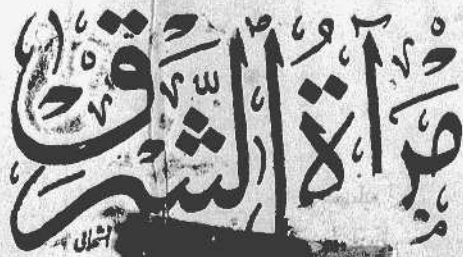 مِرآةُ الشَّرق